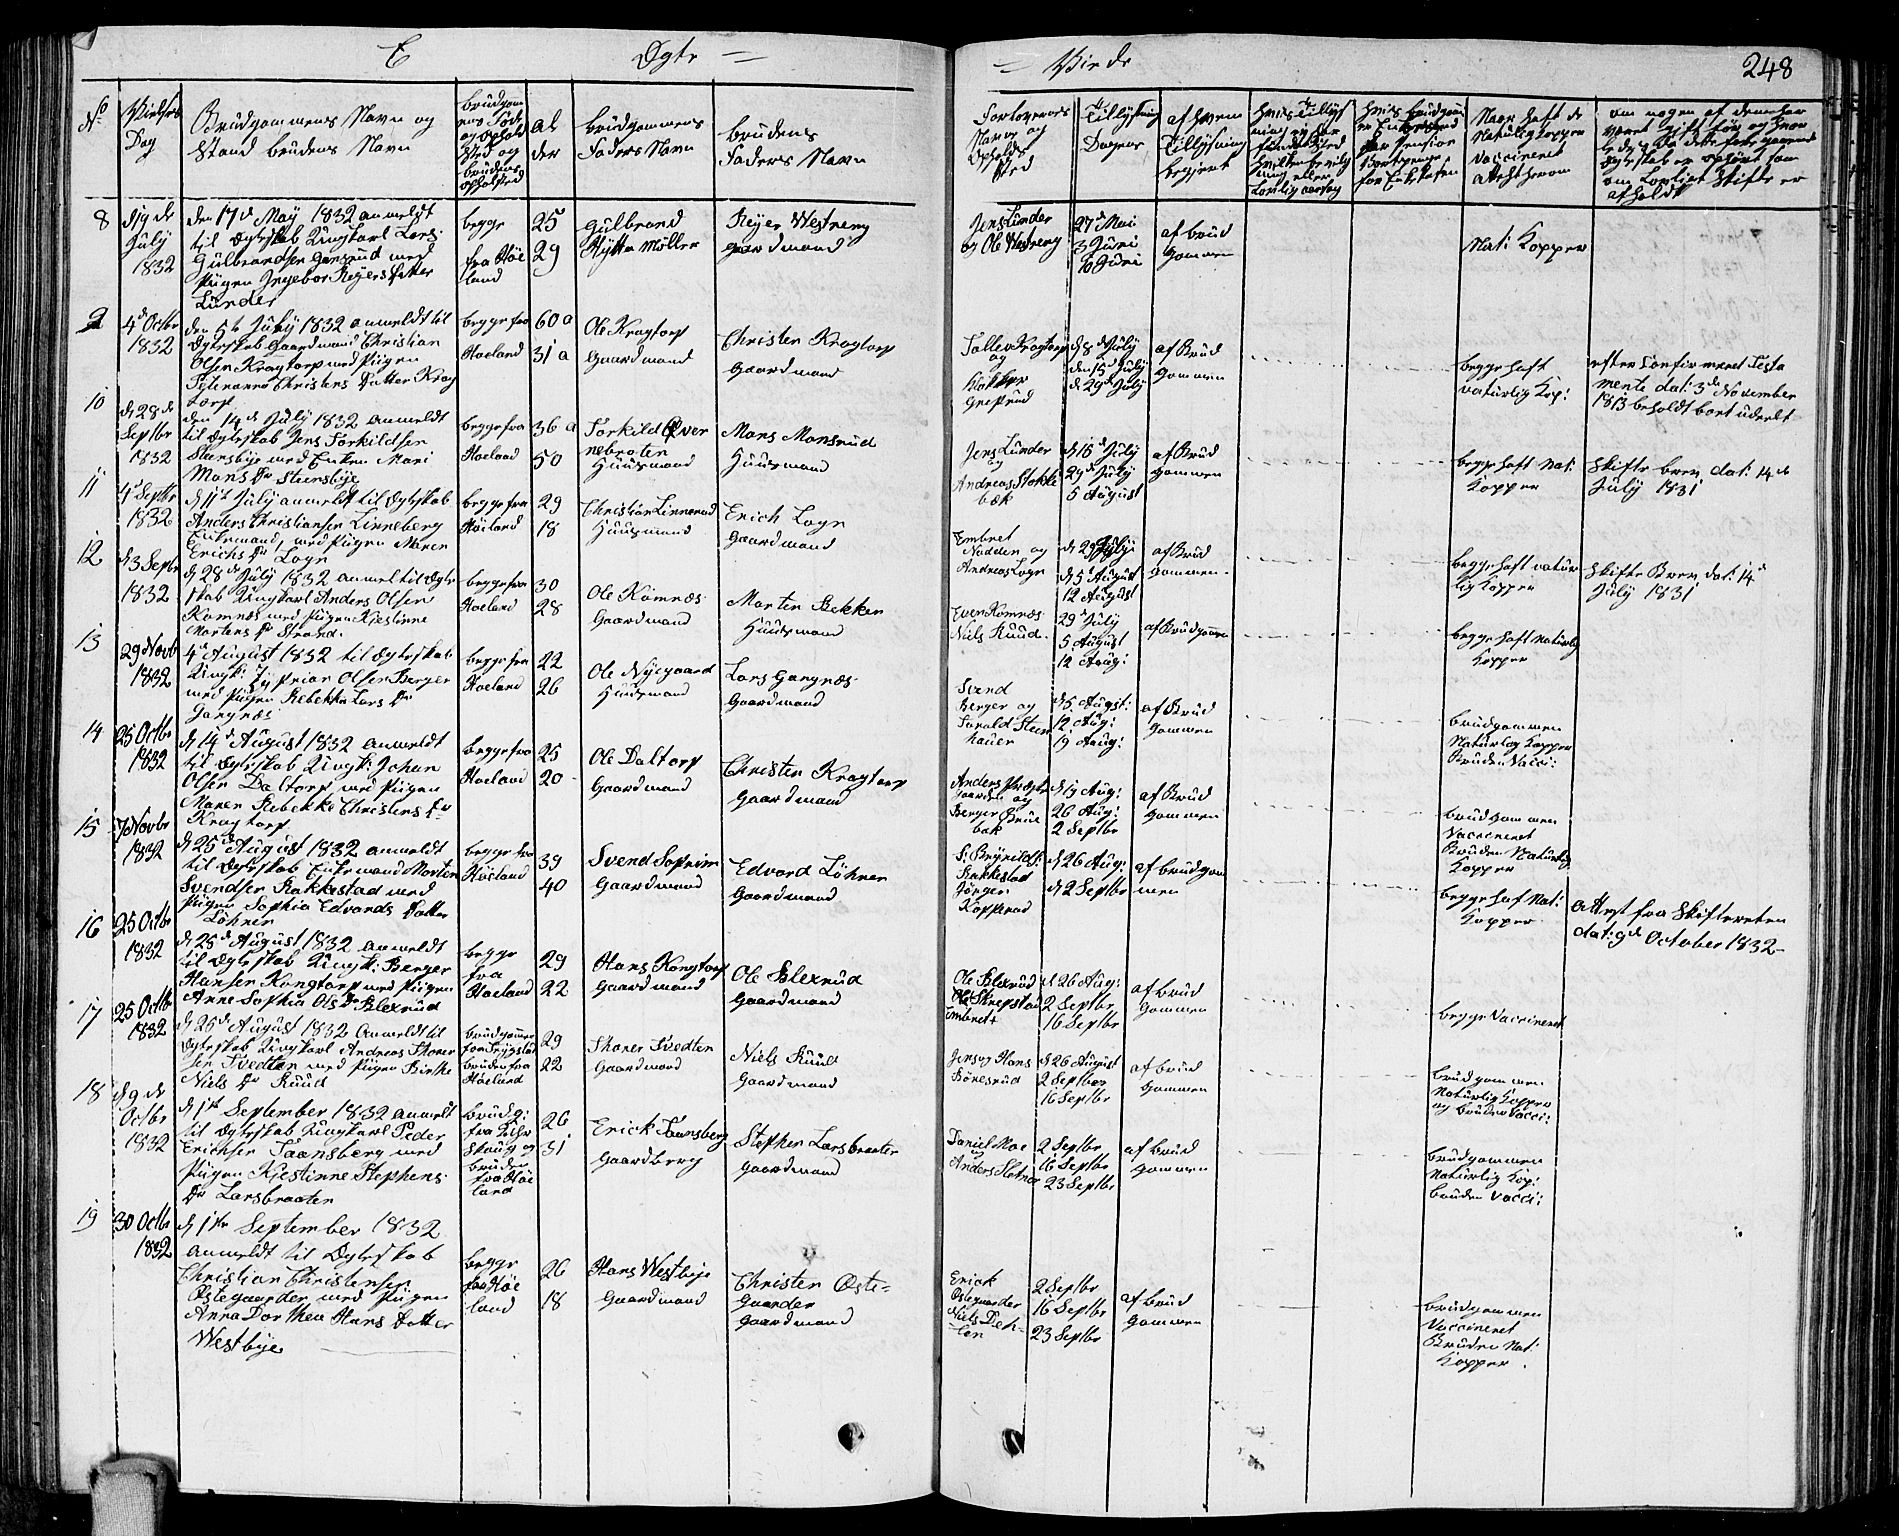 E Ægte = = Viede 248
No
Vielses
Dag
Brudgommens Navn og
Stand brudens Navn
Brudgom
mens Føde
og Ophold
sted og
brudens
opholsted
al
der
brudgommens
Faders Navn
brudens
Faders Navn
Forlovernes
Navne og
Opholds
sted
Tillysning
Dagene
af hvem
Tillysning
begjert
Naar haft de
Naturlig Kopper
Vaccineret
Attest herom
8
d 19 de
July
1832
den 17d May 1832 anmeldt
til Ægteskab Ungkarl Lars
Gulbrandsen Gansrud med
Pigen Ingebor Reiers Datter
Lunder
begge
fra Høe
land
25
29
Gulbrand
Hytte Møller
Reyer Westreng
gaardmand
Jens Lunder
og Ole Westreng
27d Mai
3 Juni
6 Juni
af brud
gommen
Nat: Kopper
9
4d Octbr
1832
den 5te July 1832 anmeldt til
Ægteskab Gaardmand Christian
Olsen Kragtorp med Pigen
Christens Datter Krag
torp
begge fra
Høeland
60 a
31 a
Ole Kragtorp
Gaardmand
Christen Kragtorp
Gaardmand
Tollev Kragtorp
og
d 8d July
den 15d July
d 29d July
af Brud
gommen
begge haft
naturlig Kop:
efter Confirmeret Testa
mente dat: 3de November
1813 beholdt bort uddelt
10
d 28 de
Septbr
1832
den 14d July 1832 anmeldt
til Ægteskab Jens Torkildsen
Stensbye med Enken Mari
Mons Dr Stensbye
begge fra
Høeland
36 a
50
Torkild Qver
nebroten
Huusmand
Mons Monsrud
Huusmand
Jens Lunder
og
Andreas Stokke
bæk
d 16d July
29d July
5 August
af Brud
gommen
begge haft Nat:
Kopper
Skifte brev dat: 14 d
July 1831
11
4d Septbr
1832
d 11t July anmeldt til Ægteskab
Anders Christiansen Linneberg
Enkemand, med Pigen Maren
Erichs Dr Logn
begge fra
Høiland
29
18
Christian Linnerud
Huusmand
Erich Logn
Gaardmand
Embret
Nadden og
Andreas Logn
d 29 July
d 5 August
12 August
af Brud
gommen
begge haft natur
lig Kopper
Skifte Brev dat: 14d
July 1831
12
d 3 Septbr
1832
d 28d July 1832 anmel til Ægte
skab Ungkarl Anders Olsen
Komnæs med Pigen Kjestinne
Mortens Dr Strand.
begge fra
Høeland
30
28
Ole Komnæs
Gaardmand
Morten Bekken
Huusmand
Even Komnæs
Niels Ruud.
29d July
5 August
12 Aug:
af Brudgomen
begge haft Naturlig
Kopper
13
29 Novbr
1832
4d August 1832 til Ægteskab
Ungk: Zyprian Olsen Berger
med Pigen Rebekka Lars Dr
Gangnæs
begge fra
Høeland
22
26
Ole Nygaard
Huusmand
Lars Gangnæs
Gaardmand
Svend
Berger og
Harald Steen
hauer
d 5 Augst:
12 Aug:
19 Aug:
af Brud
gommen
brudgommen
Naturlig Kopper
Bruden Vacci:
14
25 Octbr
1832
d 14d August 1832 anmeldt
til Ægteskab Ungk: Johan
Olsen Daltorp med Pigen
Maren Rebekka Christens Dr
Kragtorp
begge fra
Høeland
25
20
Ole Daltorp
Gaardmand
Christen Kragtorp
Gaardmand
Anders Præste
gaarden og
Berger Brue
bak
d 19 Aug:
26 Aug:
2 Septbr
af Brud
gommen
brudgommen
Vaccineret
Bruden Naturlig
Kopper
15
7 Novbr
1832
d 25d August 1832 anmeldt
til Ægteskab Enkemand Morten
Svendsen Rakkestad med
Pigen Sophia Edvards Datter
Løhner
begge fra
Høeland
39
40
Svend Sopriim
Gaardmand
Edvard Løhner
Gaardmand
Rakkestad
Jørgen
Kopperud
d 26 Aug:
d 2 Septbr
af brudgom
men
begge haf Nat:
Kopper
Attest fra Skifteretten
dat: 9d October 1832
16
25 Octbr
1832
d 25d August 1832 anmeldt
til Ægteskab Ungk: Berger
Hansen Kongtorp med Pigen
Anne Sophia Ols Dr Blexrud
begge
fra
Høeland
29
22
Hans Kongtorp
Gaardmand
Ole Blexrud
Gaardmand
Ole Blexrud
Ole Skrepstad
Embret
d 26 Aug:
2 Septbr
16 Septbr
af brud
gommen
begge Vaccineret
17
25 Octbr
1832
d 25d August 1832 Anmeldt til
Ægteskab Ungkarl Andreas Thorer
sen Tvedten med Pigen Birthe
Niels Dr Ruud
brudgommen
fra Trygstad
bruden fra
Høeland
29
22
Thorer Tvedten
Gaardmand
Niels Ruud
Gaardmand
Jens og Hans
Bønesrud
d 26 August
2 Septber
16 Septbr
af brud
gommen
brudgommen
Naturlig Kopper
og bruden Vacci:
18
d 9 de
Octbr
1832
d 1st September 1832 anmelt
til Ægteskab Ungkarl Peder
Erichsen Taansberg med
Pigen Kjestinne Stephens
Dr Larsbraaten
brudg:
skoug og
bruden
fra Høe
land
26
31
Erick Taansberg
Gaardberg
Stephen Larsbraaten
Gaardmand
Daniel Moe
og
Anders Slotnæs
2 Septbr
16 Septbr
23 Septbr
af brud
gommen
brudgommen
Naturlig Kop:
bruden Vacci:
19
30 Octbr
1832
d 1ste September 1832
anmeldt til Ægteskab
Christian Christensen
Østegaarder med Pigen
Anna Dorthea Hans Datter
Westbye
begge
fra Høe
land
26
18
Hans Westbye
Gaardmand
Christen Øste-
gaarder
Gaardmand
Erick
Østegaarder
Niels Deh-
len
2 Septbr
16 Septbr
23 Septbr
af brud
gommen
brudgommen
Vaccineret
Bruden Nat:
Kopper